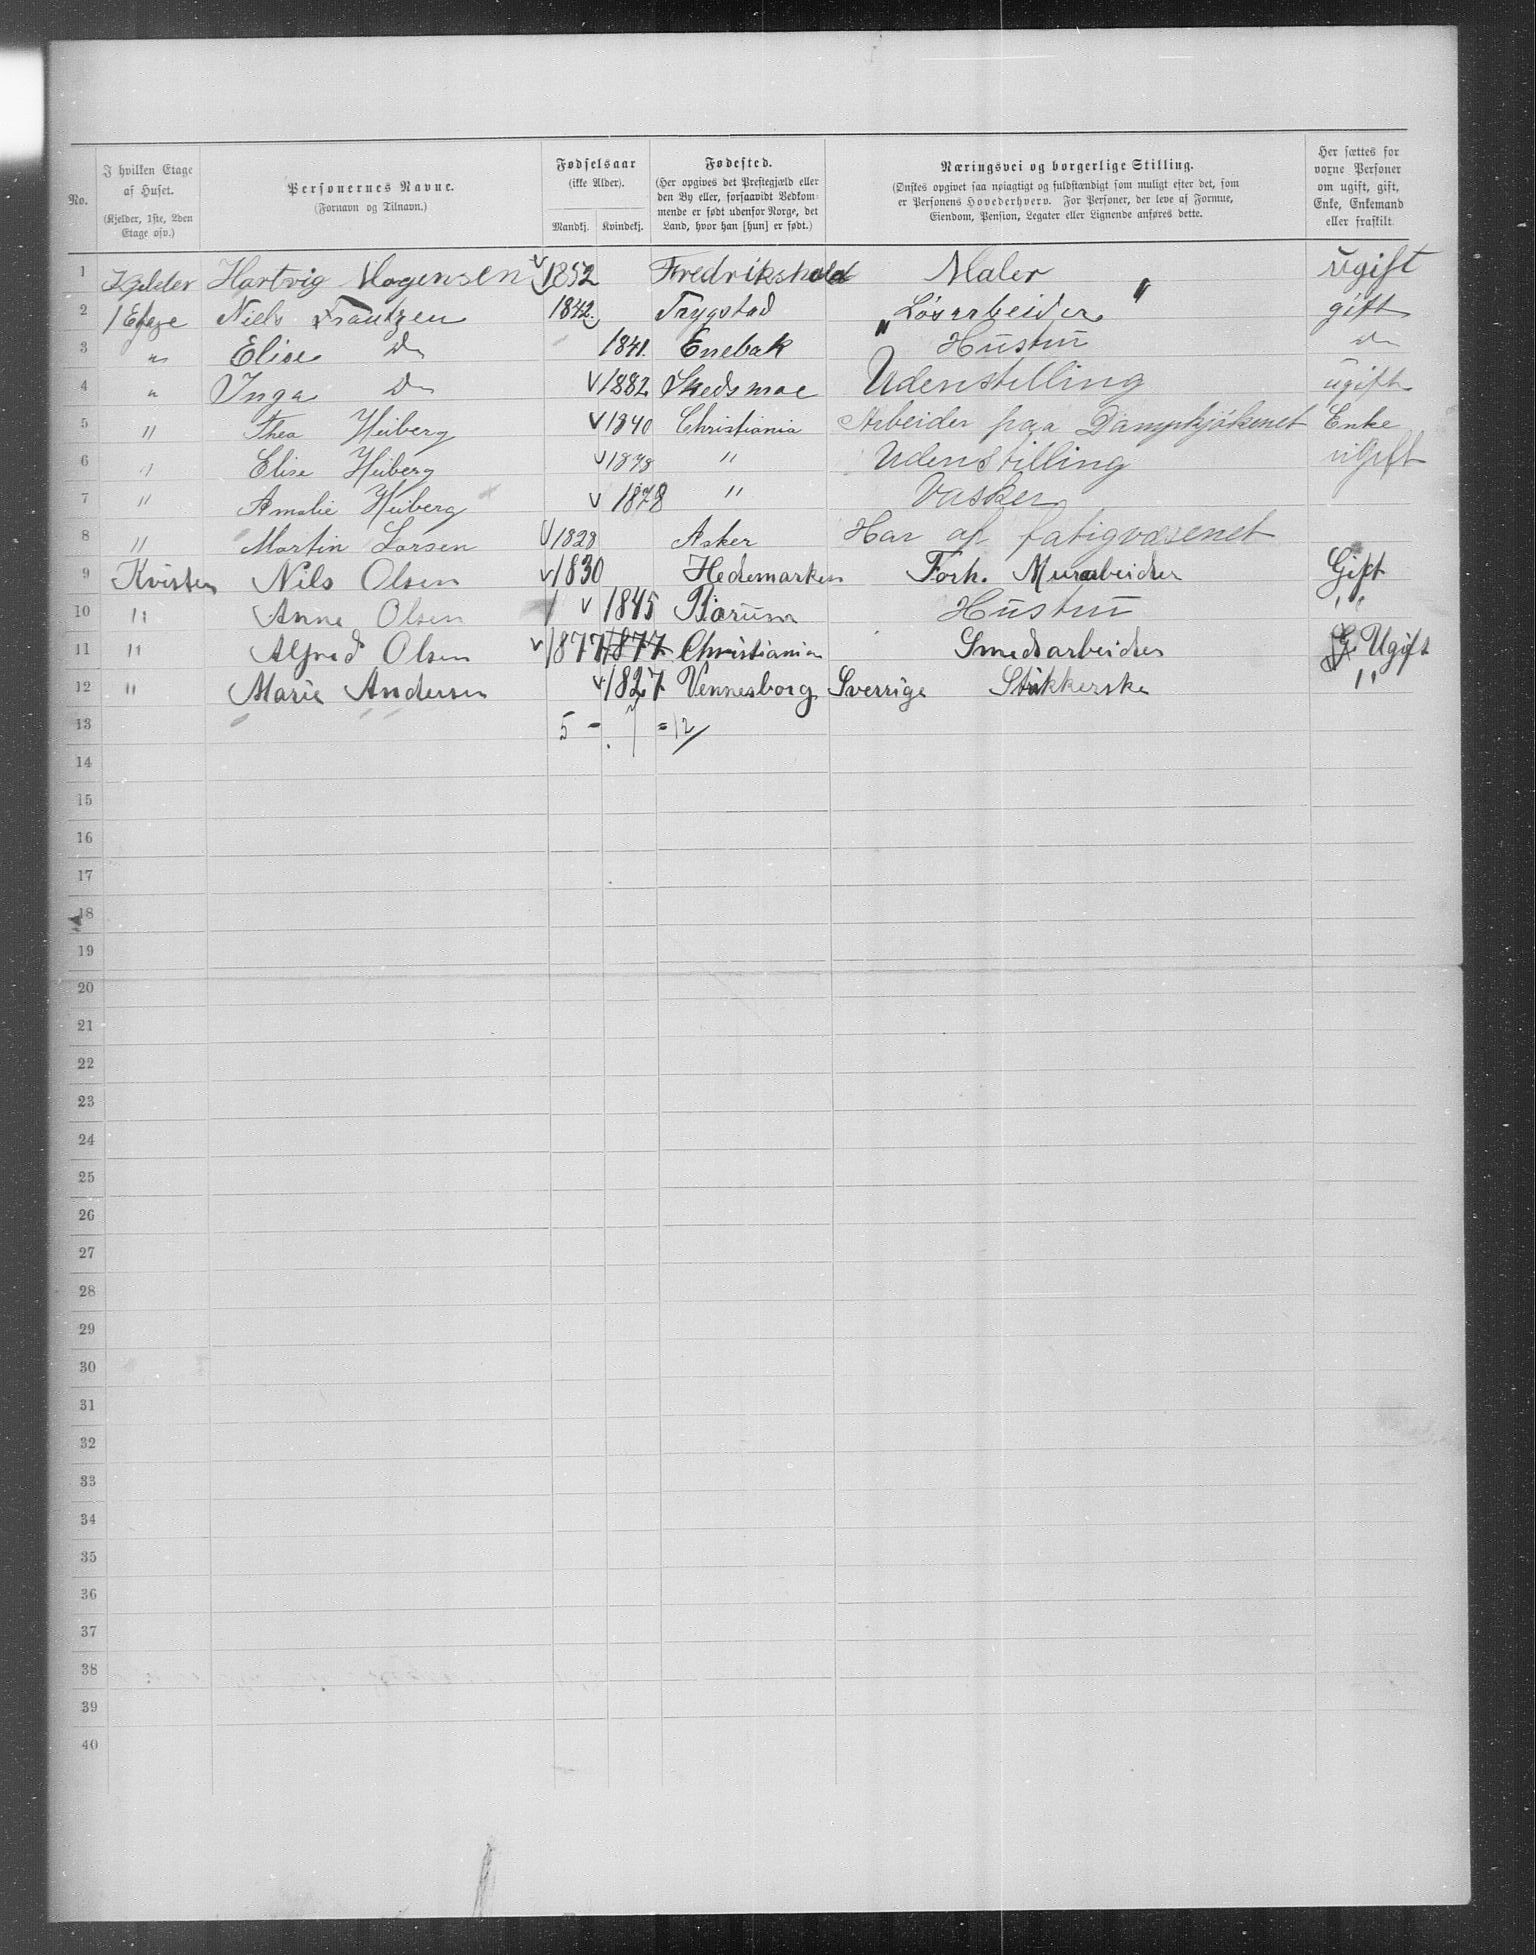 No. | I hvilken Etage af Huset. (Kjelder, 1ste, 2den Etage osv.) | Personernes Navne. (Fornavn og Tilnavn.) | Fødselsaar (ikke Alder). Mandkj. Kvindekj. | Fødested. (Her opgives det Prestegjæld eller den By eller, forsaavidt Vedkommende er født udenfor Norge, det Land, hvor han [hun] er født.) | Næringsvei og borgerlige Stilling. (Ønskes opgivet saa nøiagtigt og fuldstændigt som muligt efter det, som er Personens Hovederhverv. For Personer, der leve af Formue, Eiendom, Pension, Legater eller Lignende anføres dette. | Her sættes for vorne Personer om ugift, gift, Enke, Enkemand eller fraskilt.
1 Kjelder Hartvig Mogensen 1852 Fredrikshald Maler " ugift
2 1 Etage Niels Frantzen 1842 Trygstad " Løsarbeider gift
3 " Elise Do 1841. Enebak Hustru Do
4 " Inga Do 1882 Skedsmoe Udenstilling ugift
5 " Thea Heiberg 1840 Christiania Arbeider paa Dampkjøkenet Enke
6 " Elise Heiberg 1878 " Udenstilling uGift
7 " Amalie Heiberg 1878 " Vasker
8 " Martin Larsen 1828 Asker Har af fatigvæsenet
9 Kvisten Nils Olsen 1830 Hedemarken Forh. Murarbeider Gift
10 " Anne Olsen 1845 Bærum Hustru "
11 " Alfred Olsen 1877 1877 Christiania Smedsarbeider G Ugift
12 " Marie Andersen 1827 Vennesborg Sverrige Strikkerske "
13 5 - 7 = 12
14
15
16
17
18
19
20
21
22
23
24
25
26
27
28
29
30
31
32
33
34
35
36
37
38
39
40